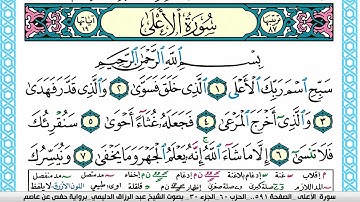 سُورَةُ الأَعْلَى
بِسْمِ ٱللَّهِ ٱلرَّحْمَٰنِ ٱلرَّحِيمِ
سَبِّحِ ٱسْمَ رَبِّكَ ٱلْأَعْلَى ١ ٱلَّذِى خَلَقَ فَسَوَّىٰ ٢ وَٱلَّذِى قَدَّرَ فَهَدَىٰ
٣ وَٱلَّذِىٓ أَخْرَجَ ٱلْمَرْعَىٰ ٤ فَجَعَلَهُۥ غُثَآءً أَحْوَىٰ ٥ سَنُقْرِئُكَ
فَلَا تَنسَىٰٓ ٦ إِلَّا مَا شَآءَ ٱللَّهُ إِنَّهُۥ يَعْلَمُ ٱلْجَهْرَ وَمَا يَخْفَىٰ ٧ وَنُيَسِّرُكَ
سورة الأعلى . الصفحة ٥٩١ . الحزب ٦٠ . الجزء ٣٠ . بصوت الشيخ عبد الرزاق الدليمي . برواية حفص عن عاصم